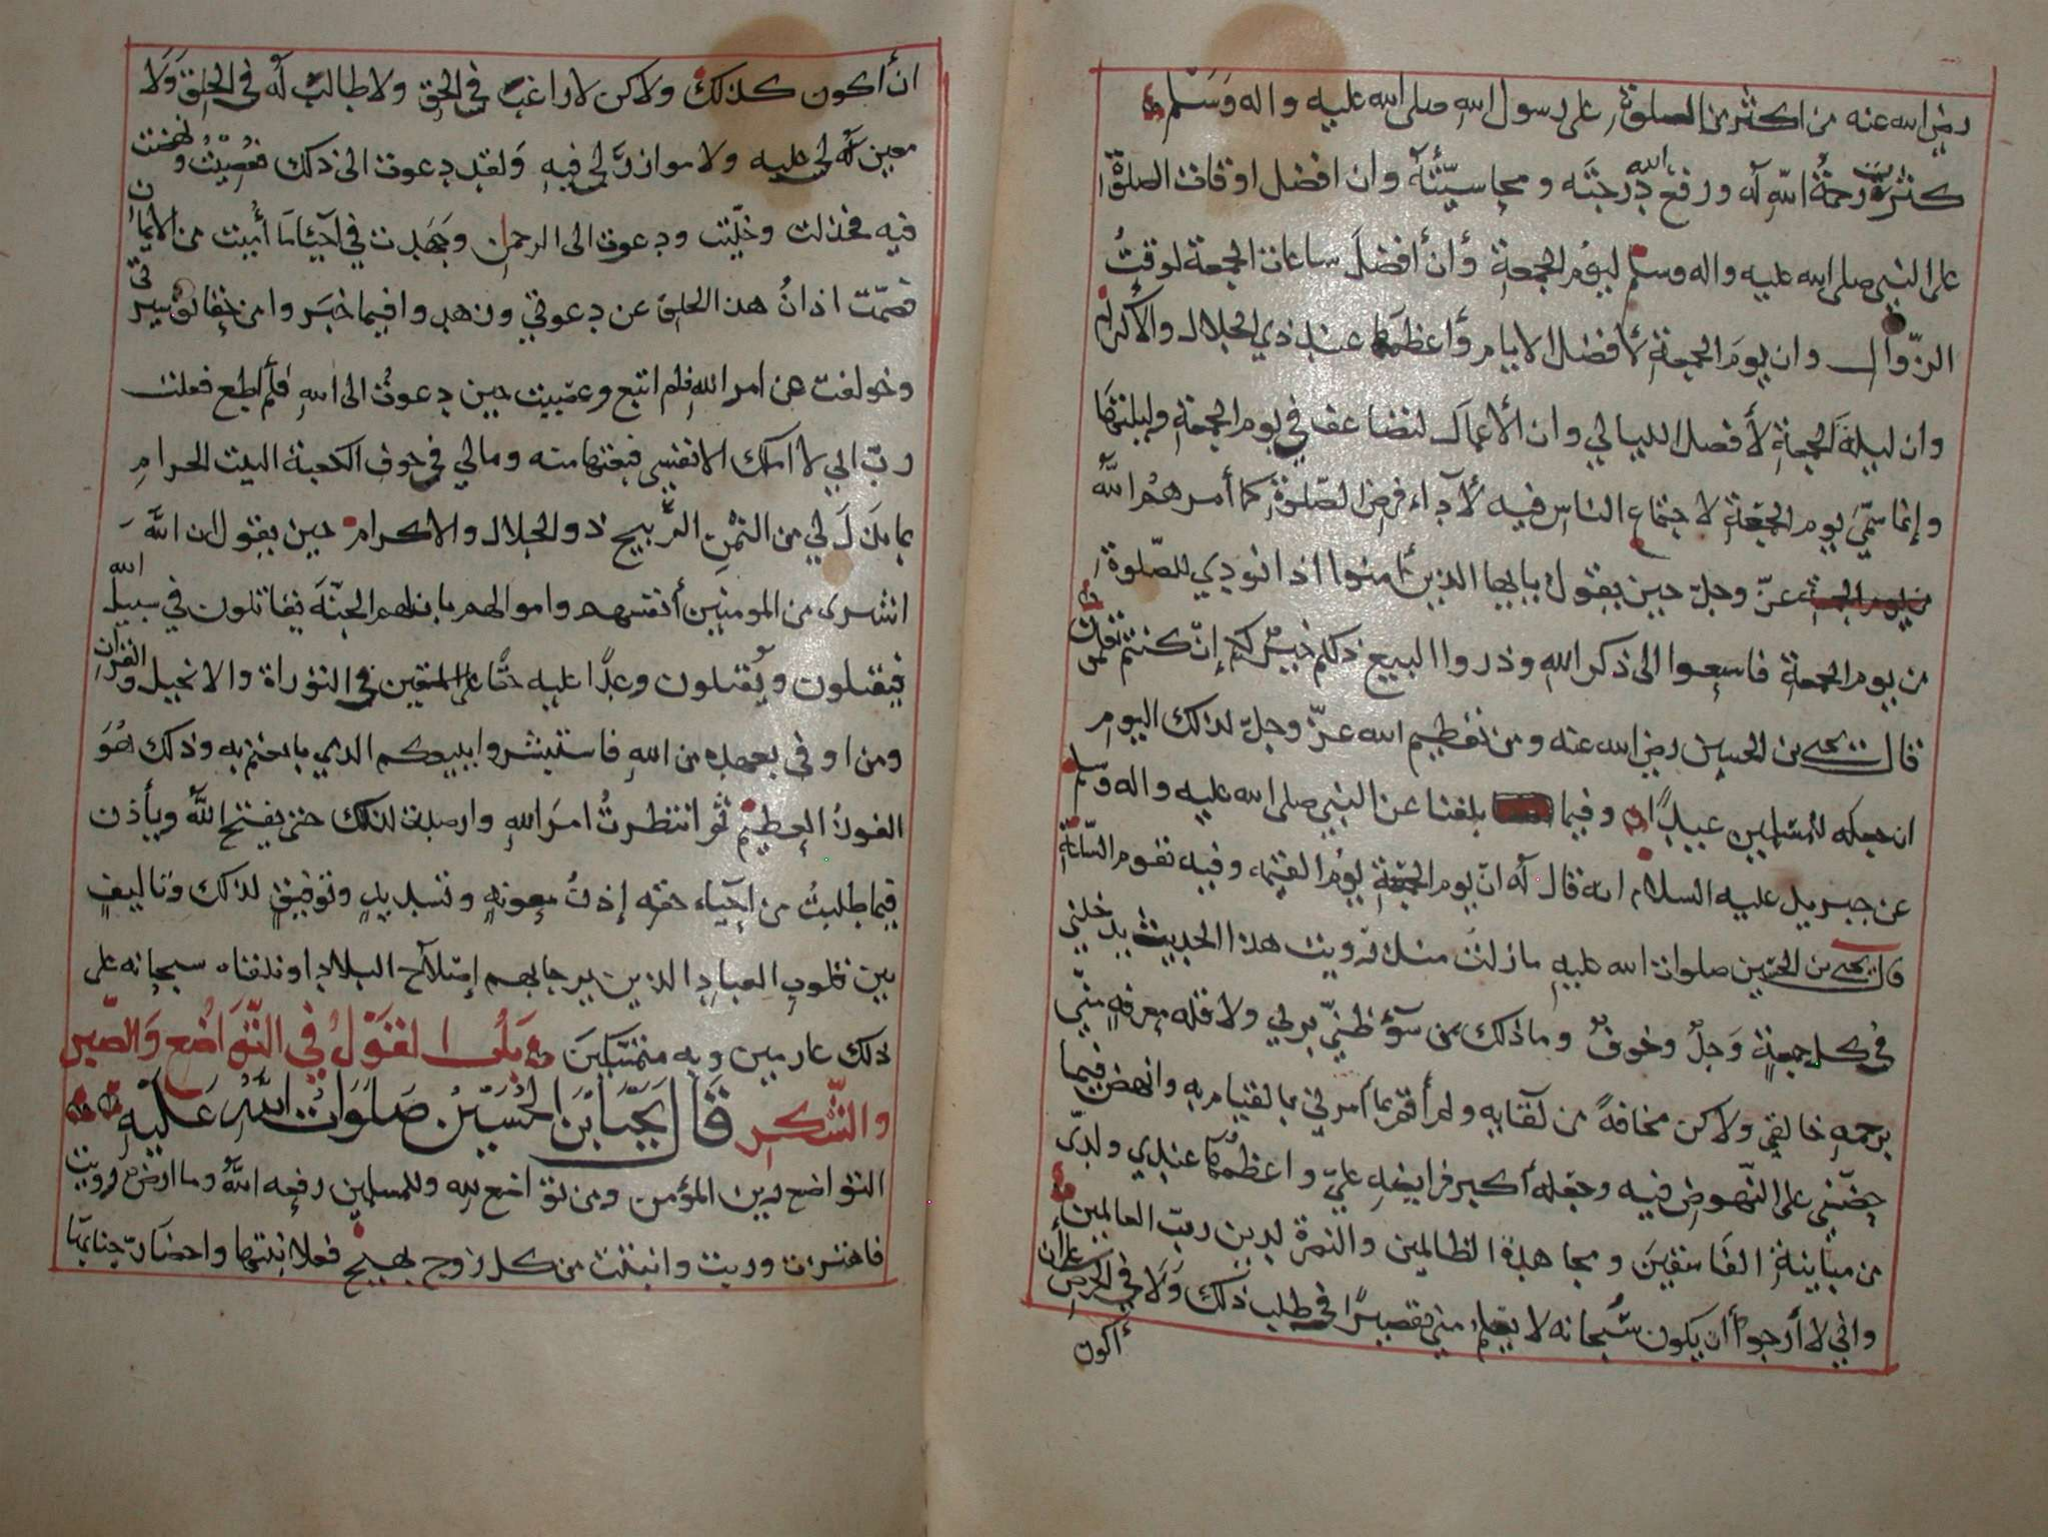 رضي الله عنه من اكثر من الصلوة على رسول الله صلى الله عليه واله وسلم
كثرت رحمة الله له ورفع الله درجته ومحا سيئته وان افضل اوقات الصلوة
على النبي صلى الله عليه واله وسلم ليوم الجمعة وأن أفضل ساعات الجمعة لوقت
الزوال وان يوم الجمعة لأفضل الايام وأعظمها عند ذي الجلال والاكرام
وان ليلة الجمعة لأفضل الليالي وان الأعمال لتضاعف في يوم الجمعة وليلتها
وإنما سمي يوم الجمعة لاجتماع الناس فيه لأداء فرض الصلوة كما أمرهم الله
عز وجل حين يقول يايها الذين أمنوا اذا نودي للصلوة
من يوم الجمعة فاسعوا الى ذكر الله وذروا البيع ذلكم خير لكم إن كنتم تعلمون
قال يحيى بن الحسين رضي الله عنه ومن تعظيم الله عز وجل لذلك اليوم
ان جعله للمسلمين عيدا وفيما بلغنا عن النبي صلى الله عليه واله وسلم
عن جبريل عليه السلام انه قال له ان يوم الجمعة يوم القيمه وفيه تقوم الساعة
قال يحيى بن الحسين صلوات الله عليه مازلت منذ رويت هذا الحديث يدخلني
في كل جمعة وجل وخوف وما ذلك من سوء ظني بربي ولا قله معرفه مني
برحمه خالقي ولاكن مخافة من لقايه ولم أقم بما أمرني بالقيام به وانهض فيما
حضني على النهوض فيه وجعله أكبر فرايضه علي واعظمها عندي ولدي
من مباينة الفاسقين ومجاهدة الظالمين والنصرة لدين رب العالمين
واني لأرجوا أن يكون سبحانه لا يعلم مني تقصيرا في طلب ذلك ولا في الحرص على أن
أكون
ان أكون كذلك ولاكن لا راغب في الحق ولا طالب له في الخلق ولا
معين له لي عليه ولا موازر لي فيه ولقد دعوت الى ذلك فعصيت ونهضت
فيه فخذلت وخليت ودعوت الى الرحمان وجهدت في احياء ما أميت من الايمان
فصمت اذان هذا الخلق عن دعوتي وزهدوا فيما خبر وا من حقايق سيرتي
وخولفت عن امر الله فلم اتبع وعصيت حين دعوت الى الله فلم أطع فعلت
رب اني لا املك الا نفسي فبعتها منه ومالي في جوف الكعبة البيت الحرام
بما بذل لي من الثمن الربيح ذو الجلال والاكرام حين يقول ان الله
اشترى من المومنين أنفسهم واموالهم بان لهم الجنة يقاتلون في سبيل الله
فيقتلون ويقتلون وعدا عليه حقا على المتقين في التوراة والانجيل والقرآن
ومن اوفى بعهده من الله فاستبشروا ببيعكم الذي بايعتم به وذلك هو
الفوز العظيم ثم انتظرت امر الله وارصدت لذلك حتى يفتح الله ويأذن
فيما طلبت من إحياء حقه إذن معونه وتسديد وتوفيق لذلك وتاليف
بين قلوب العباد الذين يرجا بهم إصلاح البلاد او نلقاه سبحانه على
ذلك عازمين وبه متمسكين باب القول في التواضع والصبر
والشكر قال يحيا بن الحسين صلوات الله عليه
التواضع لدين المؤمن ومن تواضع لله وللمسلمين رفعه الله وما ارض رويت
فاهتزت وربت وانبتت من كل زوج بهيج